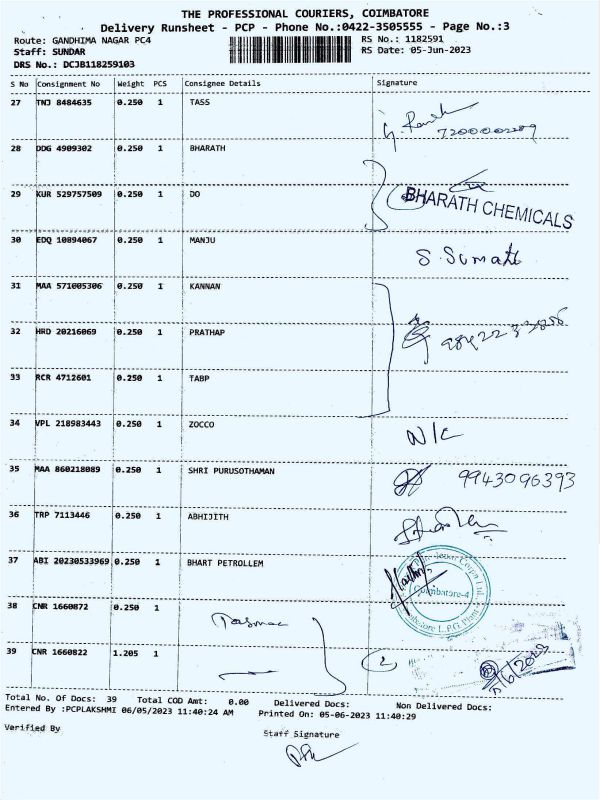 THE PROFESSIONAL COURIERS, COIMBATORE
Delivery Runsheet - PCP - Phone No.:0422-3505555 - Page No.:3
Route: GANDHIMA NAGAR PC4 RS No.: 1182591
Staff: SUNDAR RS Date: 05-Jun-2023
DRS No.: DCJB118259103
S No Consignment No Weight PCS Consignee Details Signature
27 TNJ 8484635 0.250 1 TASS
28 DDG 4909302 0.250 1 BHARATH
29 KUR 529757509 0.250 1 DO BHARATH CHEMICALS
30 EDQ 10894067 0.250 1 MANJU S. Sumathi
31 MAA 571005306 0.250 1 KANNAN
32 HRD 20216069 0.250 1 PRATHAP
33 RCR 4712601 0.250 1 TABP
34 VPL 218983443 0.250 1 ZOCCO N/C
35 MAA 860218089 0.250 1 SHRI PURUSOTHAMAN 9943096393
36 TRP 7113446 0.250 1 ABHIJITH
37 ABI 20230533969 0.250 1 BHART PETROLLEM
Coimbatore-4
38 CNR 1660872 0.250 1 Tasmac
39 CNR 1660822 1.205 1
Total No. Of Docs: 39 Total COD Amt: 0.00 Delivered Docs: Non Delivered Docs:
Entered By :PCPLAKSHMI 06/05/2023 11:40:24 AM Printed On: 05-06-2023 11:40:29
Verified By Staff Signature